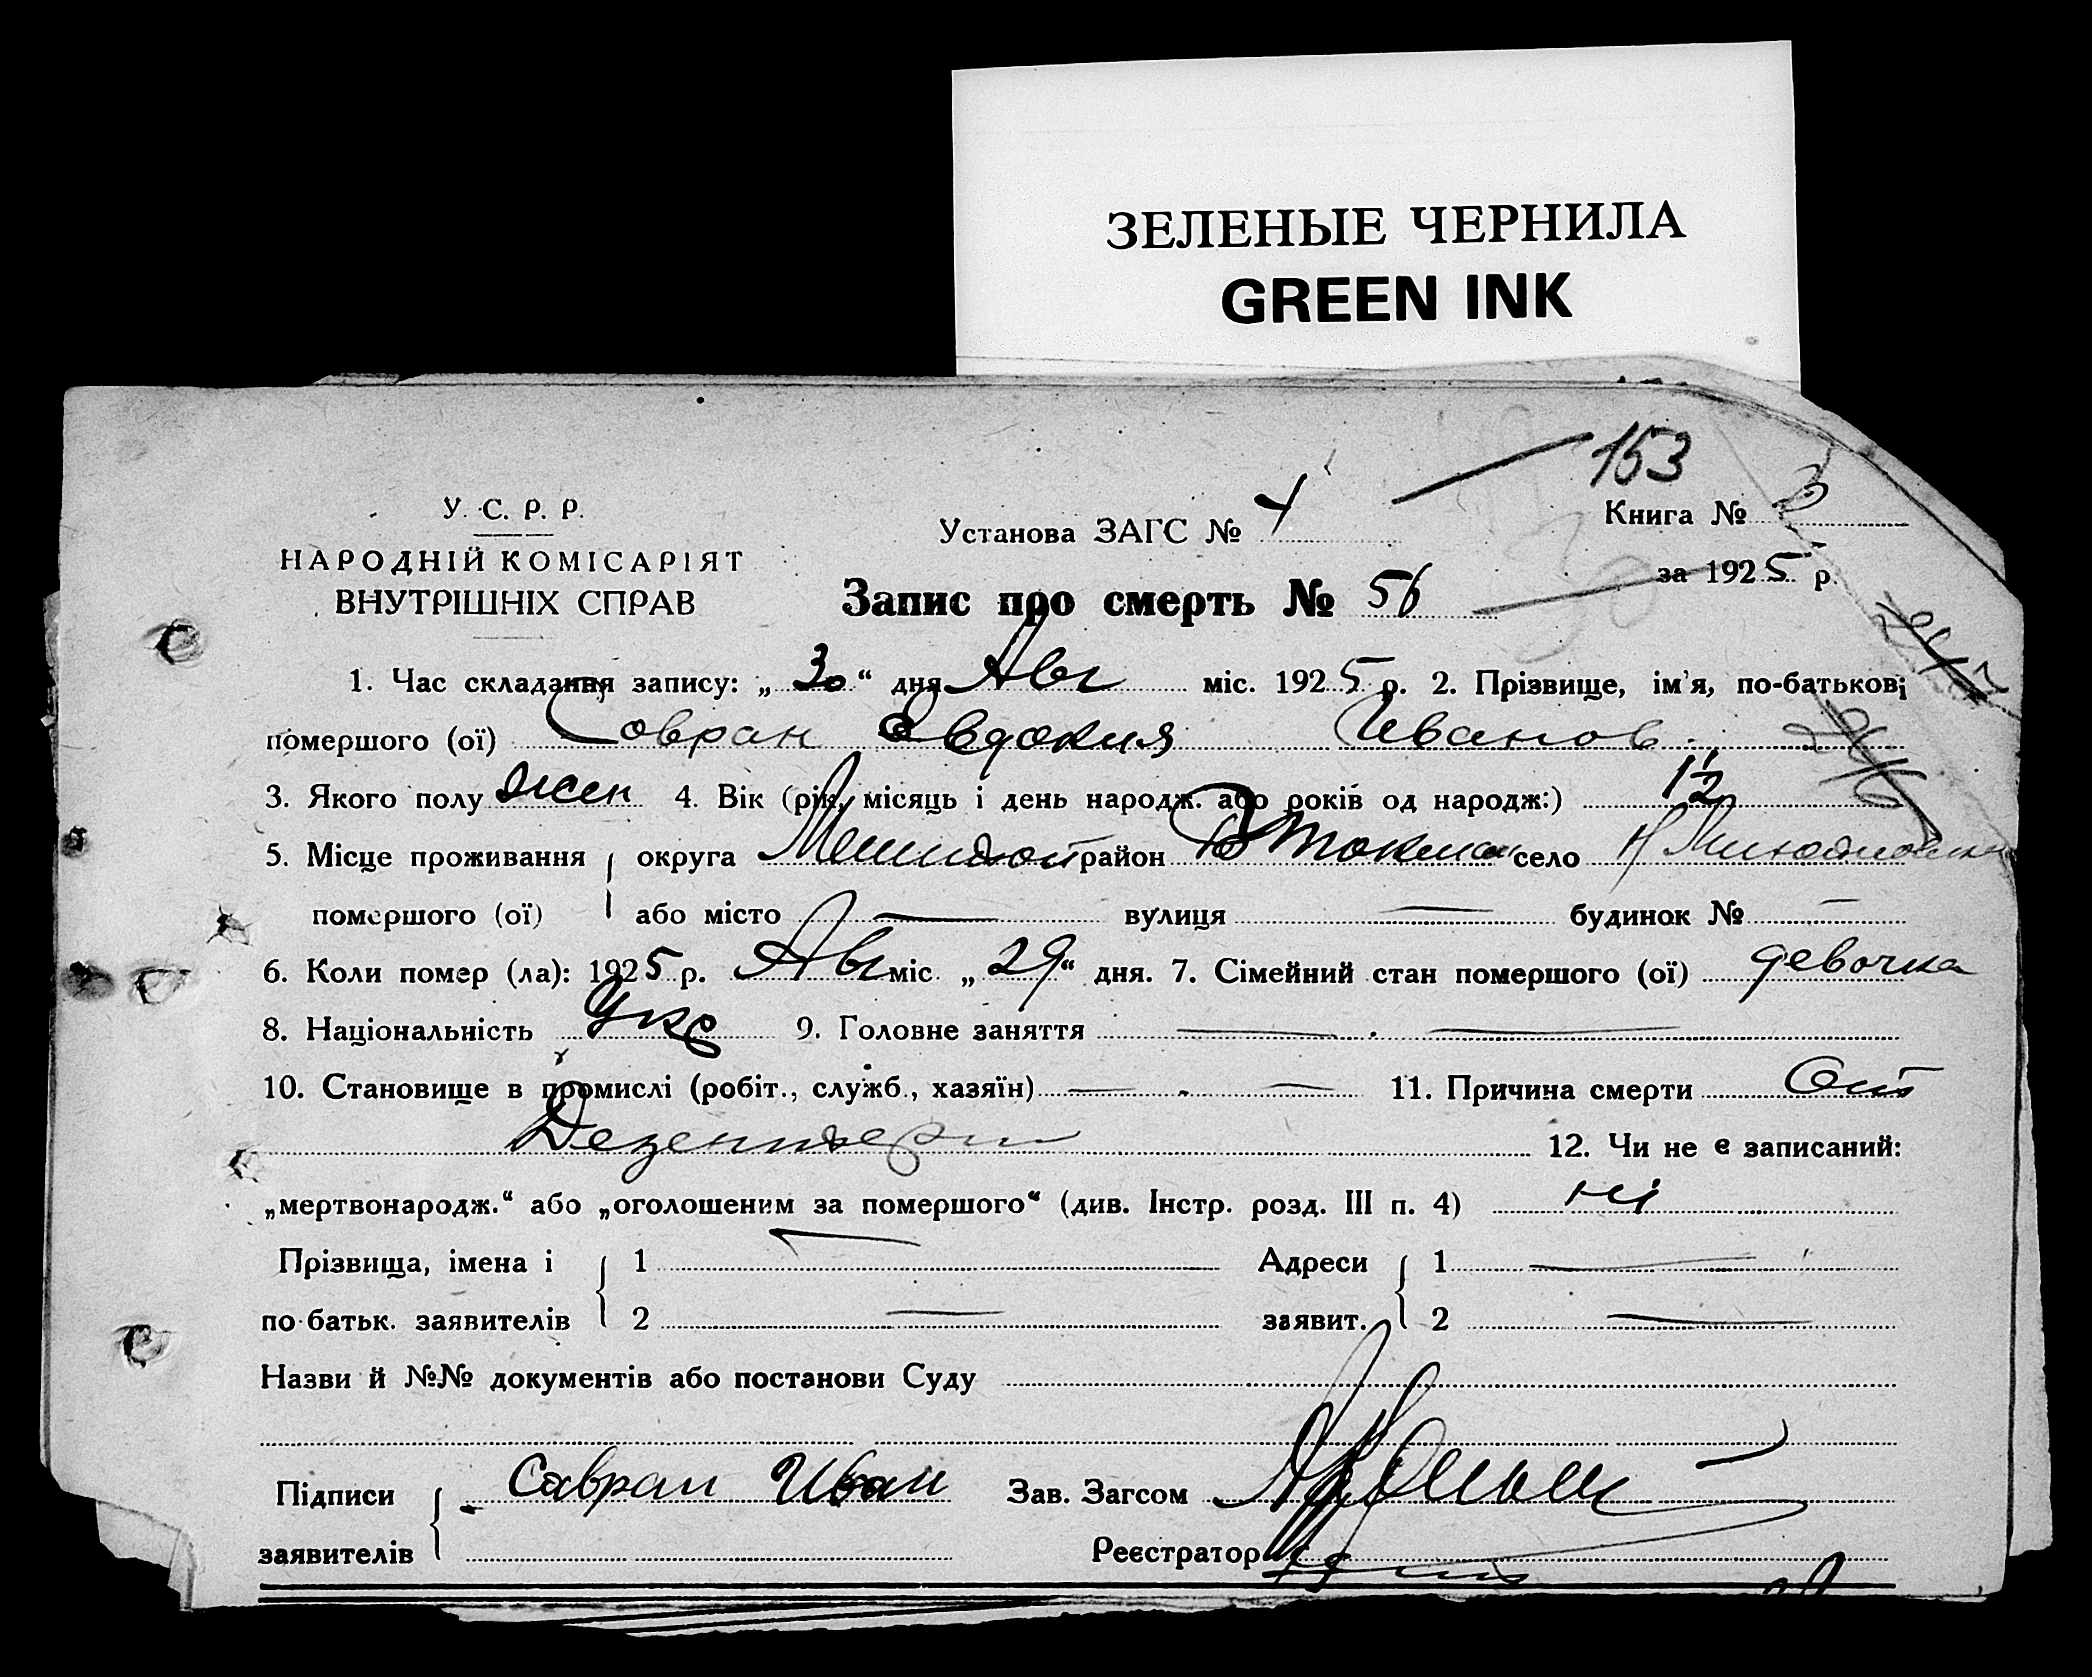 ЗЕЛЕНЫЕ ЧЕРНИЛА
GREEN INK
153
У. С. Р. Р.
НАРОДНІЙ КОМІСАРІЯТ
ВНУТРІШНІХ СПРАВ
Установа ЗАГС №
Книга № 3
за 1925 р.
Запис про смерть № 56
1. Час складання запису: „30“ дня Авг міс. 1925 р. 2. Прізвище, ім'я, по-батькові
помершого (ої) Совран Евдокия Иванов.
3. Якого полу жен 4. Вік (рік, місяць і день народж. або років од народж:) 1½
5. Місце проживання округа район Б Токмак село
помершого (ої) або місто — вулиця — будинок № —
6. Коли помер (ла): 1925 р. Авг міс. „29“ дня. 7. Сімейний стан помершого (ої) девочка
8. Національність Укр 9. Головне заняття — . —
10. Становище в промислі (робіт., служб., хазяїн) — . — 11. Причина смерти От
Дезентерии 12. Чи не є записаний:
„мертвонародж.“ або „оголошеним за помершого“ (див. Інстр. розд. III п. 4) ні
Прізвища, імена і 1 — Адреси 1 —
по батьк. заявителів 2 — заявит. 2 —
Назви й №№ документів або постанови Суду
Підписи Савран Иван Зав. Загсом
заявителів Реєстратор